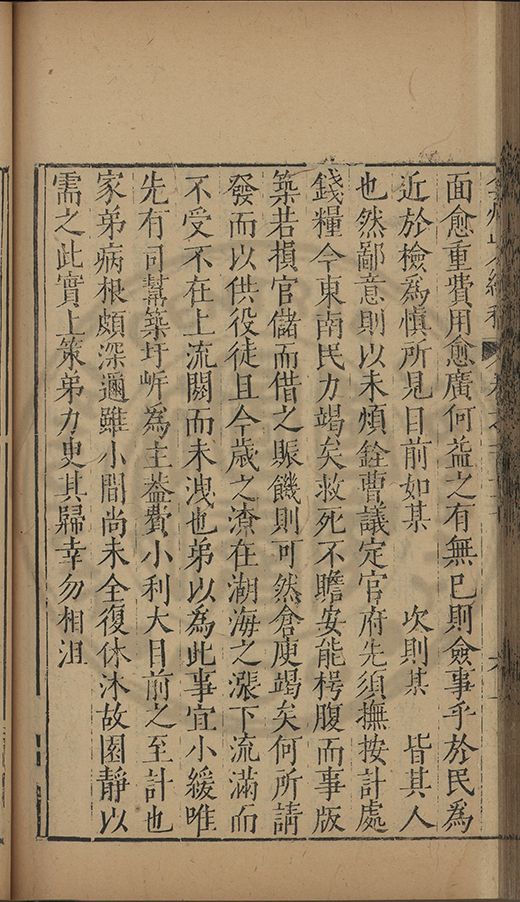 面愈重費用愈廣何益之有無已則僉事乎於民為
近於檢為愼所見目前如某　次則某　皆其人
也然鄙意則以未煩銓曹議定官府先須撫按計處
錢糧今東南民力竭矣救死不贍安能枵腹而事版
築若損官儲而借之賑饑則可然倉庾竭矣何所請
發而以供役徒且今歲之潦在潮海之漲下流滿而
不受不在上流閼而未洩也弟以為此事宜小緩唯
先有司幫築圩岸為主蓋費小利大目前之至計也
家弟病根頗深邇雖小間尚未全復休沐故園靜以
需之此實上策弟力臾其歸幸勿相沮